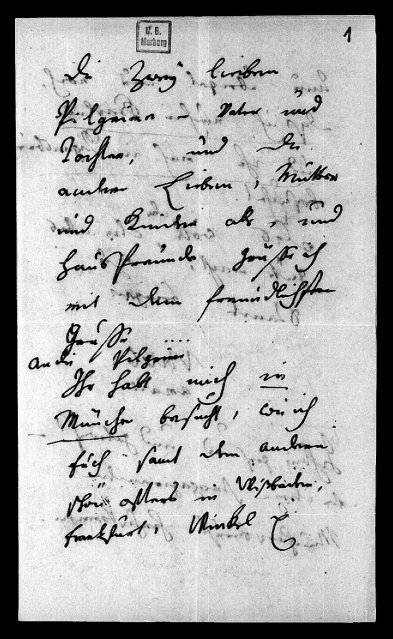 U. B.
Marburg
1
die zwey lieben
Pilgrime – Vater und
Tochter, und die
andern Lieben, Mutter
und Kinder als, und
Hausfreunde grüsse ich
mit dem freundlichsten
Grusse ....
An die Pilgrime
Ihr habt mich in
Münche besucht, wie ich
Euch samt den andern
schon öfters in Wisbaden,
Frankfurt, Winkel